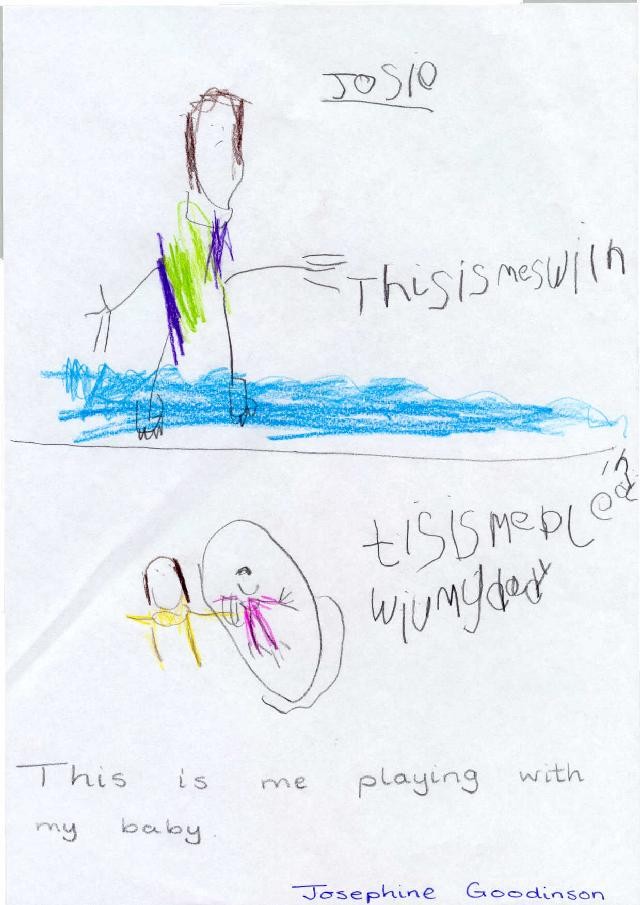 JOSIe
Thisismeswiln
tisismepleain
wiumydady
This is me playing with
my baby.
Josephine Goodinson